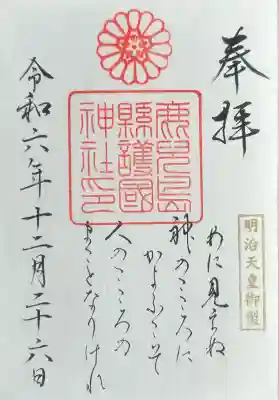 奉拝
明治天皇御製
めに見えぬ
神のこころに
かよふこそ
人のこころの
まことなりけれ
鹿児島
縣護國
神社印
令和六年十二月二十六日